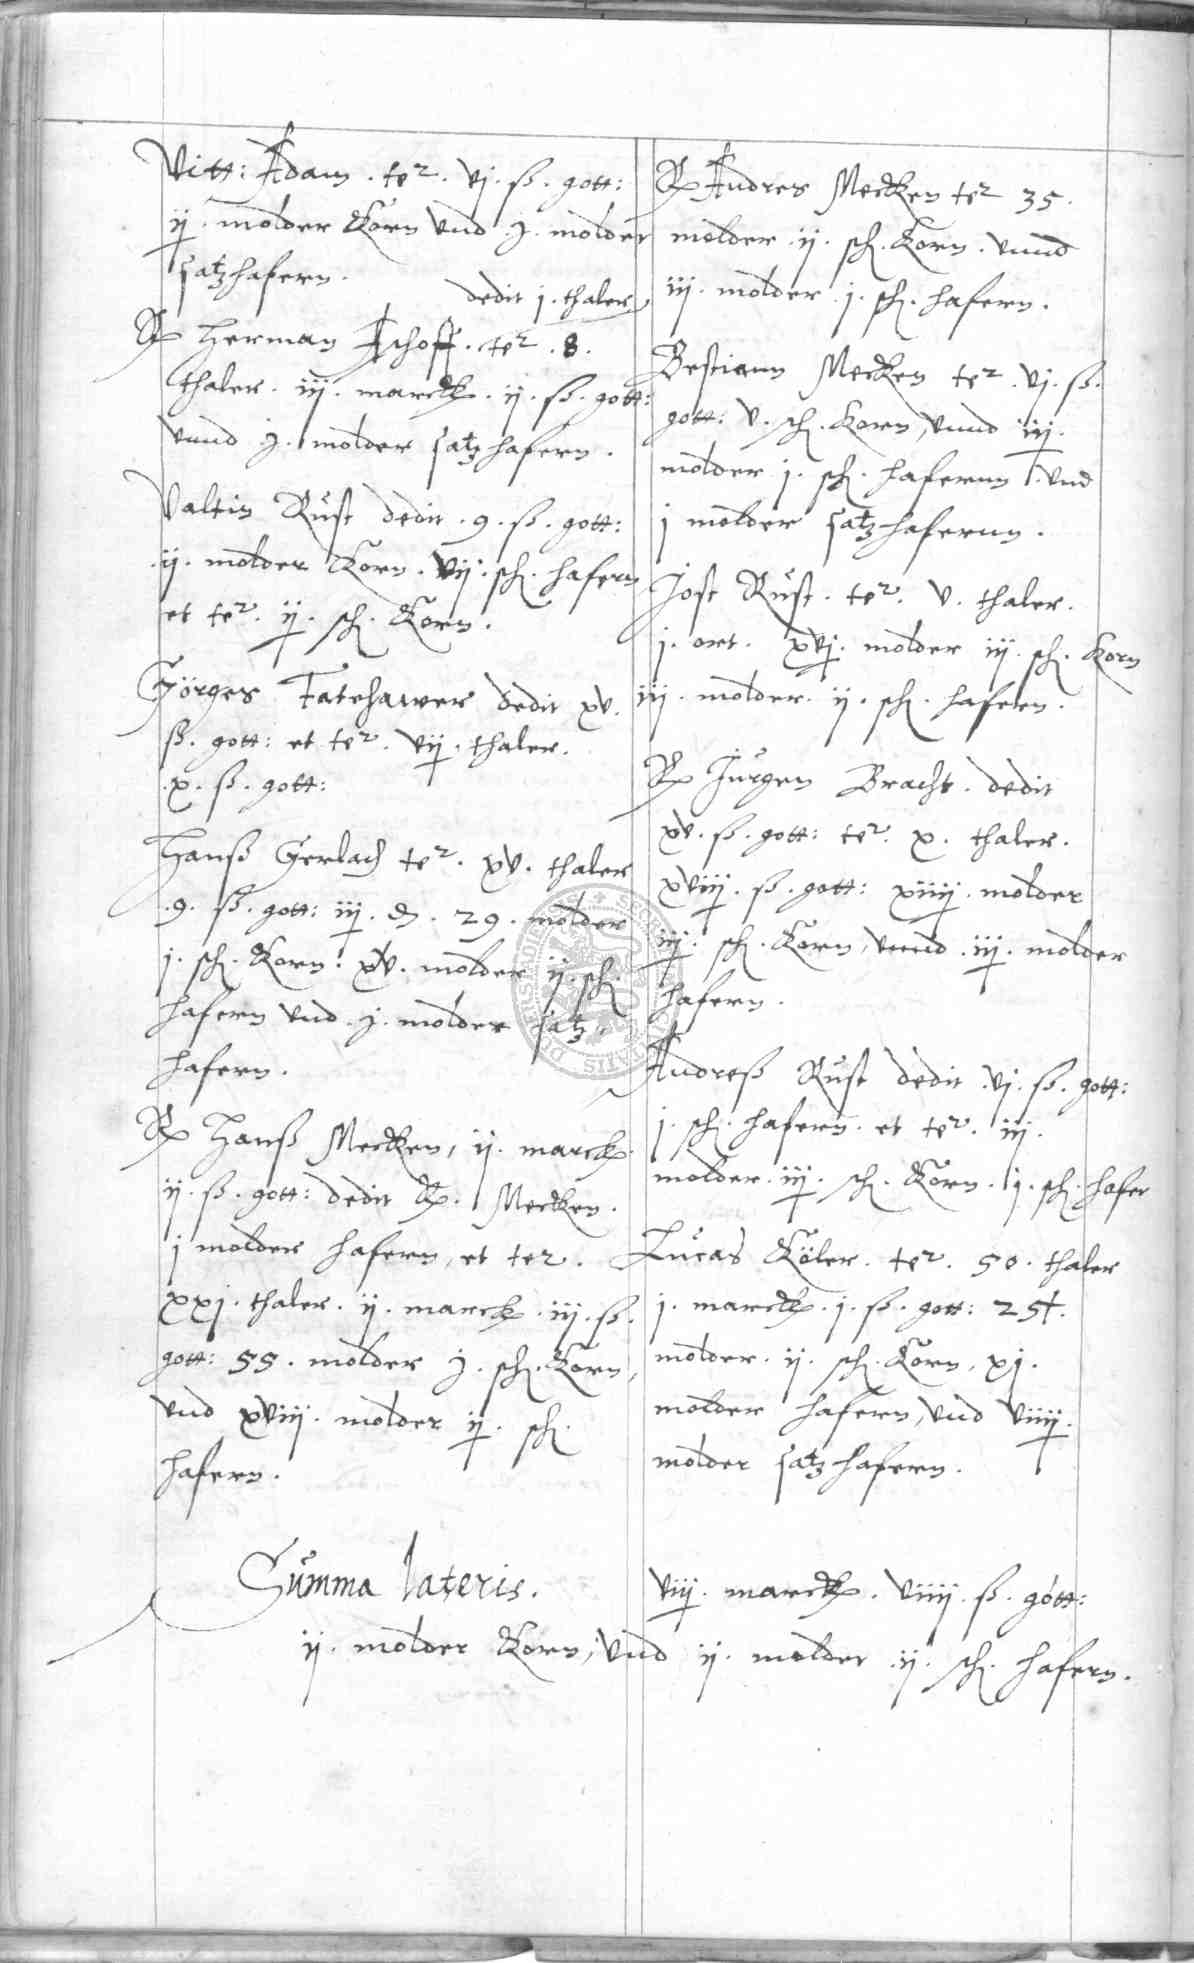 Vitt: Adam . ter . vj . ß . gott:
ij . molder Korn vnd . j . molder
satzhafern .
dedit j . thaler
Rx Herman Ischoff . ter . 8 .
thaler . iij . marck . ij . ß . gott:
vnnd j . molder satzhafern .
Valtin Rust dedit . 9 . ß . gott:
. ij . molder Korn . vij . sch . hafern
et ter . ij . sch . Korn .
Görges Fatehawer dedit xv .
ß . gott: et ter . vij . thaler .
. x . ß . gott:
Hanß Gerlach ter . xv . thaler
. 9 . ß . gott: iij . d . 29 . molder
j . sch . Korn . xv . molder ij . sch .
hafern vnd . j . molder satz
hafern .
Rx Hanß Mecken, ij . marck
ij . ß . gott: dedit Rx . Mecken .
j molder hafern, et ter .
xxj . thaler . ij . marck . iij . ß .
gott: 55 . molder j . sch . Korn,
vnd xviij . molder ij . sch .
hafern .
Rx Andres Mecken ter 35 .
molder . ij . sch . Korn . vnnd
iij . molder . j . sch . hafern .
Bestiann Mecken ter . vj . ß .
gott: v . sch . Korn, vnnd iij .
molder j . sch . hafernn . vnd
j molder satzhafernn .
Jost Rust . ter . v . thaler .
j . ort . xvj . molder iij . sch . Korn
iij . molder . ij . sch . hafern .
Rx Jurgen Bracht . dedit
xv . ß . gott: ter . x . thaler .
xviij . ß . gott: xiiij . molder
iij . sch . Korn, vnnd . iij . molder
hafern .
Andreß Rust dedit . vj . ß . gott:
j . sch . hafern . et ter . iij .
molder . iij . sch . Korn . j . sch . hafer
Lucas Köler . ter . 50 . thaler
j . marck . j . ß . gott: 254 .
molder . ij . sch . Korn . xj .
molder hafern, vnd viiij .
molder satzhafern .
Summa lateris . viij . marck . viiij . ß . gott:
ij . molder Korn, vnd ij . molder . ij . sch . hafern .